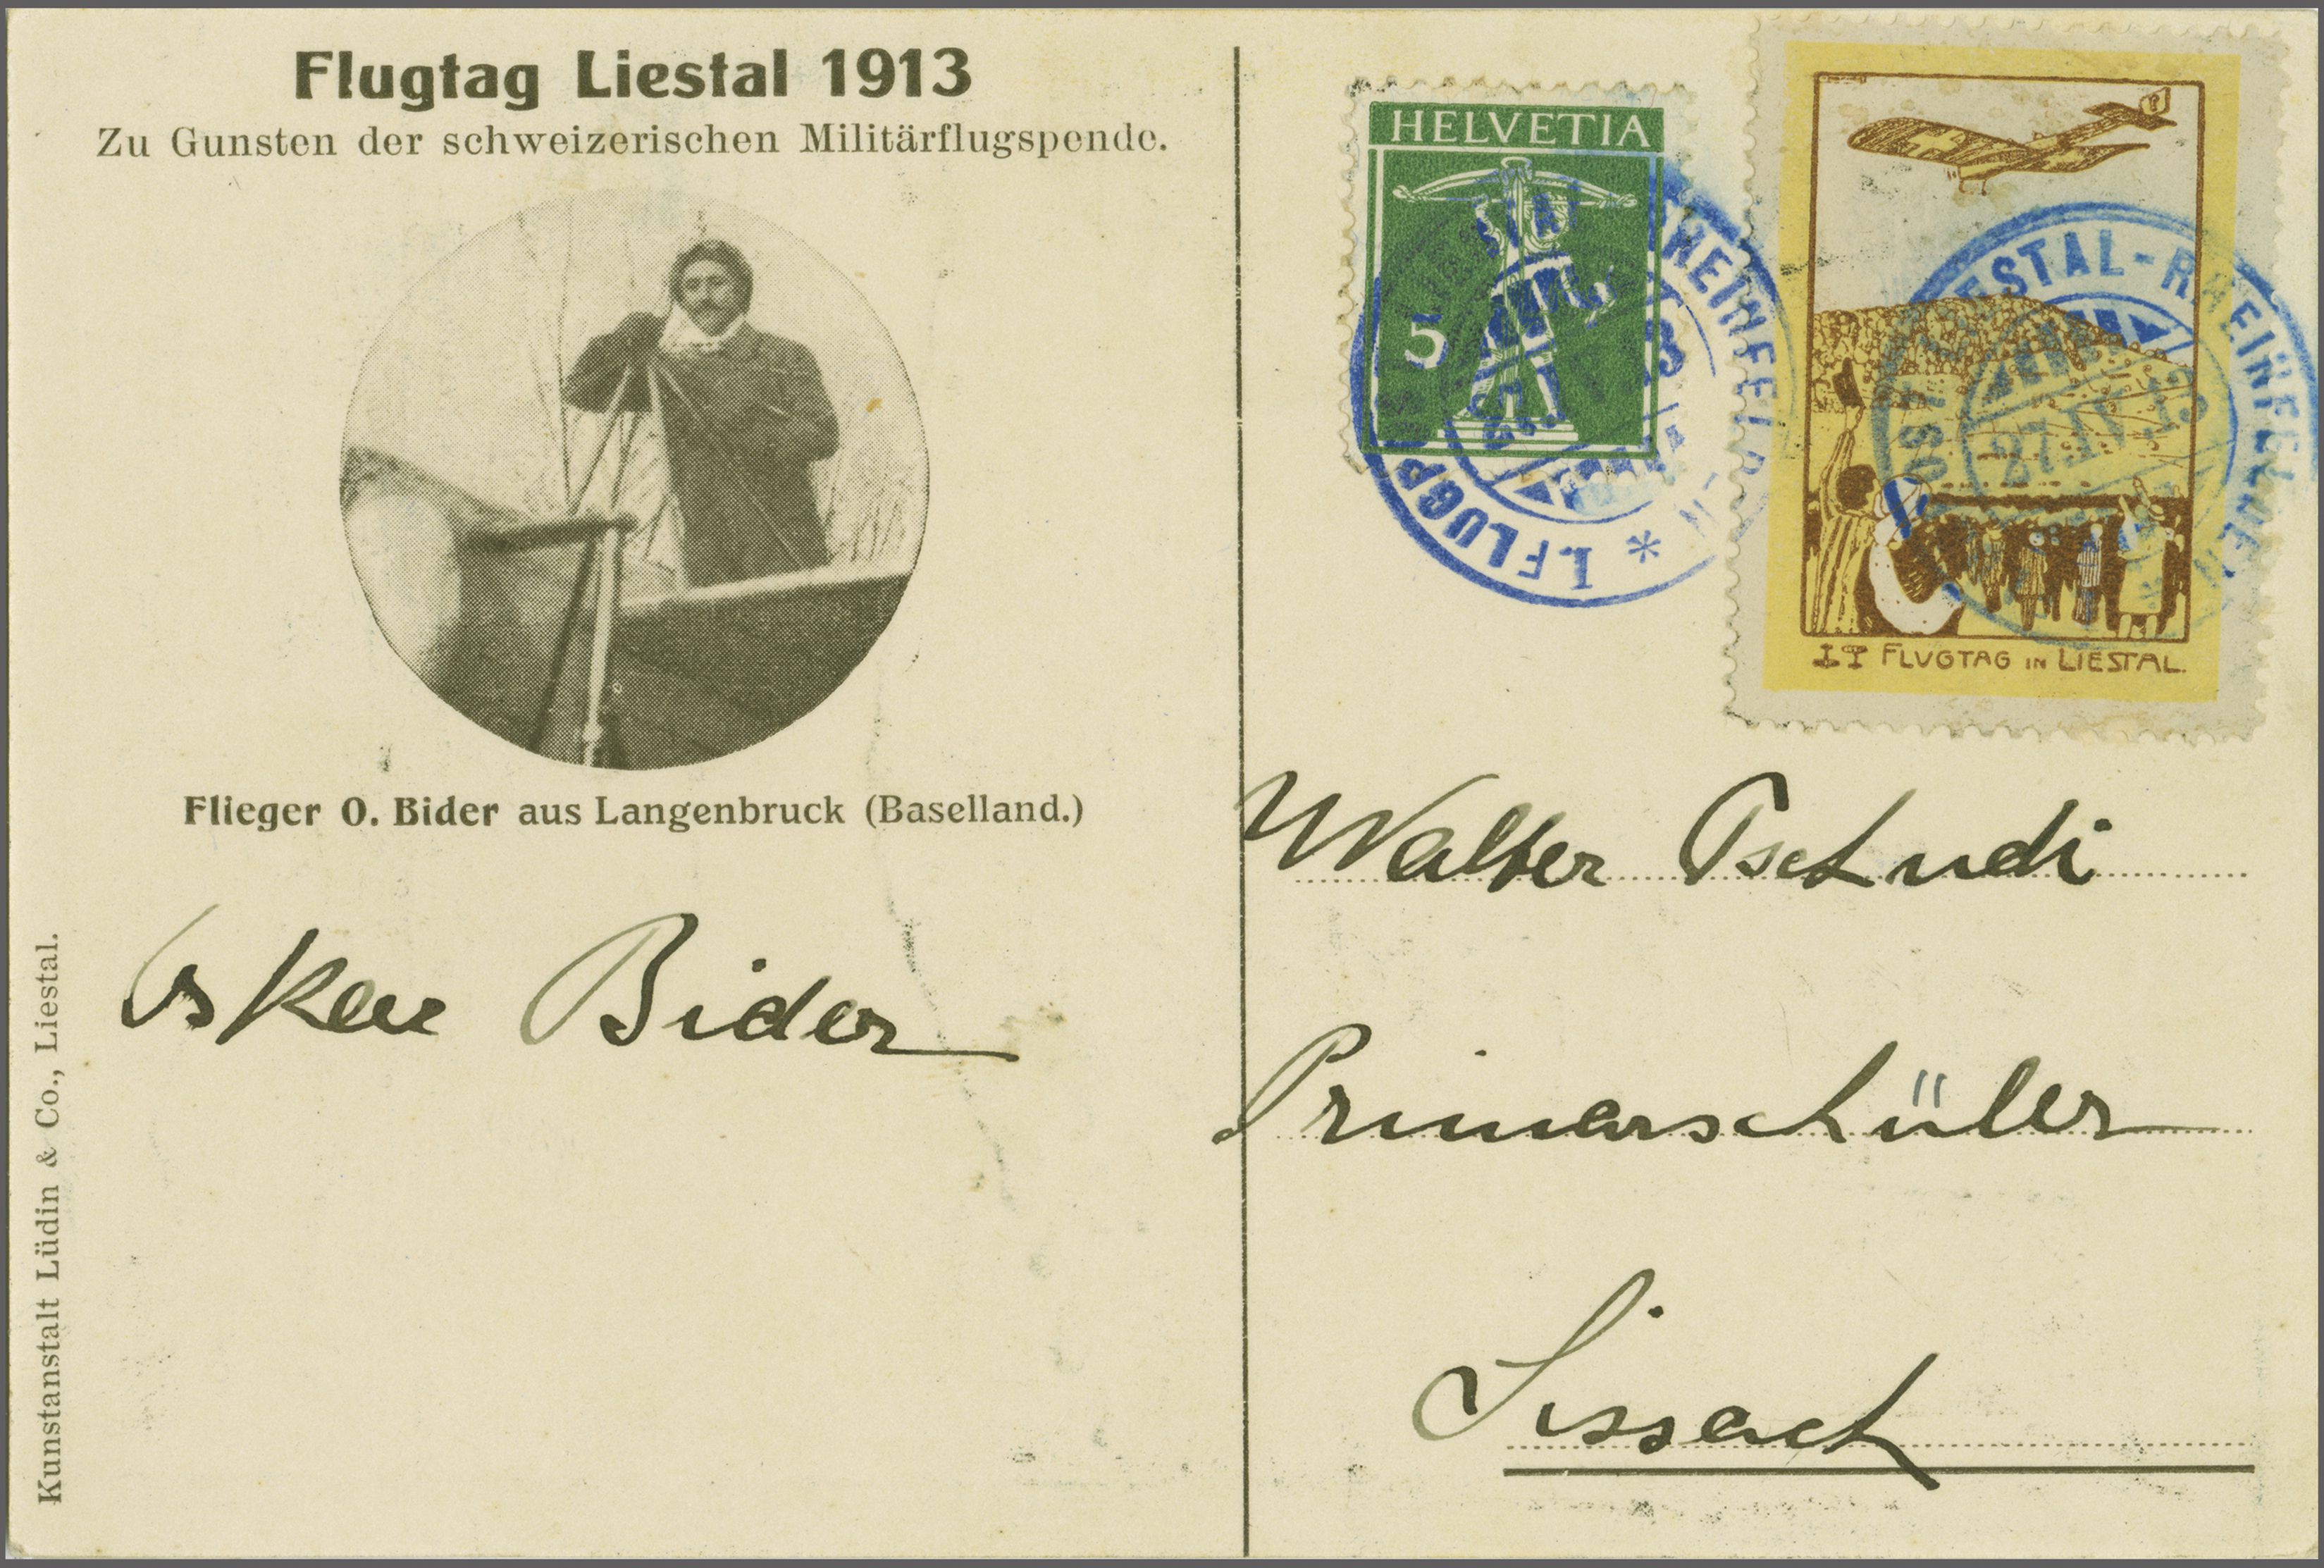 Flugtag Liestal 1913
Zu Gunsten der schweizerischen Militärflugspende.
Flieger O. Bider aus Langenbruck (Baselland.)
Oskar Bider
Kunstanstalt Lüdin & Co., Liestal.
HELVETIA
5
I. FLUGPOST LIESTAL-RHEINFELDEN *
FLUGTAG IN LIESTAL.
LIESTAL-RHEINFELDEN
27.IV.13
Walter Tschudi
Primarschüler
Sissach